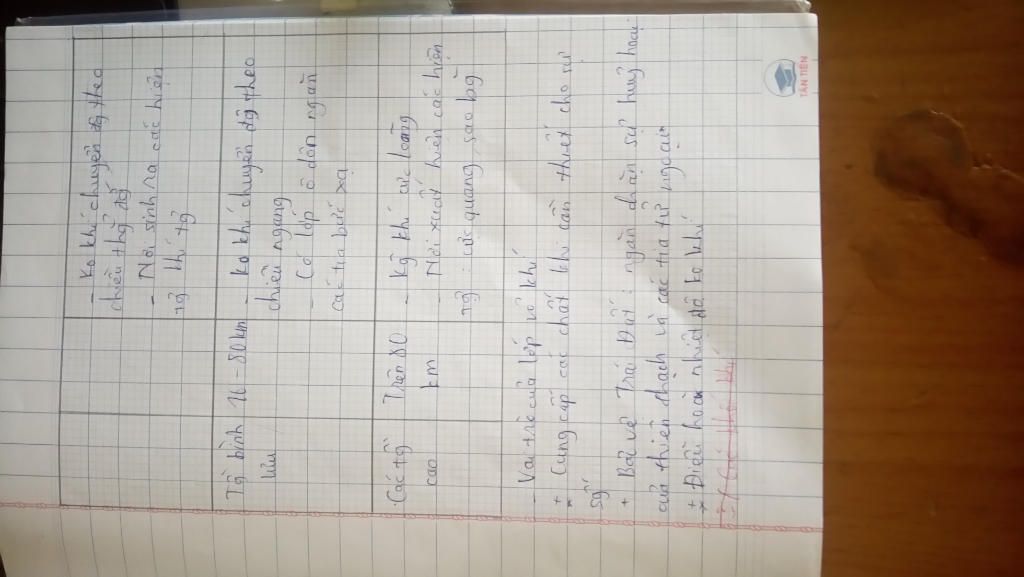 - ko khí chuyển độ theo
chiều thẳ đứ
- Nơi sinh ra các hiện
tg khí tg
Tg bình
lưu
16 - 80 km
- ko khí chuyển độ theo
chiều ngang
- Có lớp ô dôn ngăn
các tia bức xạ
Các tg
cao
Trên 80
km
- kg khí cực loãng
- Nơi xuất hiện các hiện
tg: cực quang, sao bg
- Vai trò của lớp vỏ khí
+ Cung cấp các chất khí cần thiết cho sự
sg
+ Bảo vệ Trái Đất: ngăn chặn sự huỷ hoại
của thiên thạch và các tia tử ngoại
+ Điều hoà nhiệt độ ko khí
TÂN TIẾN